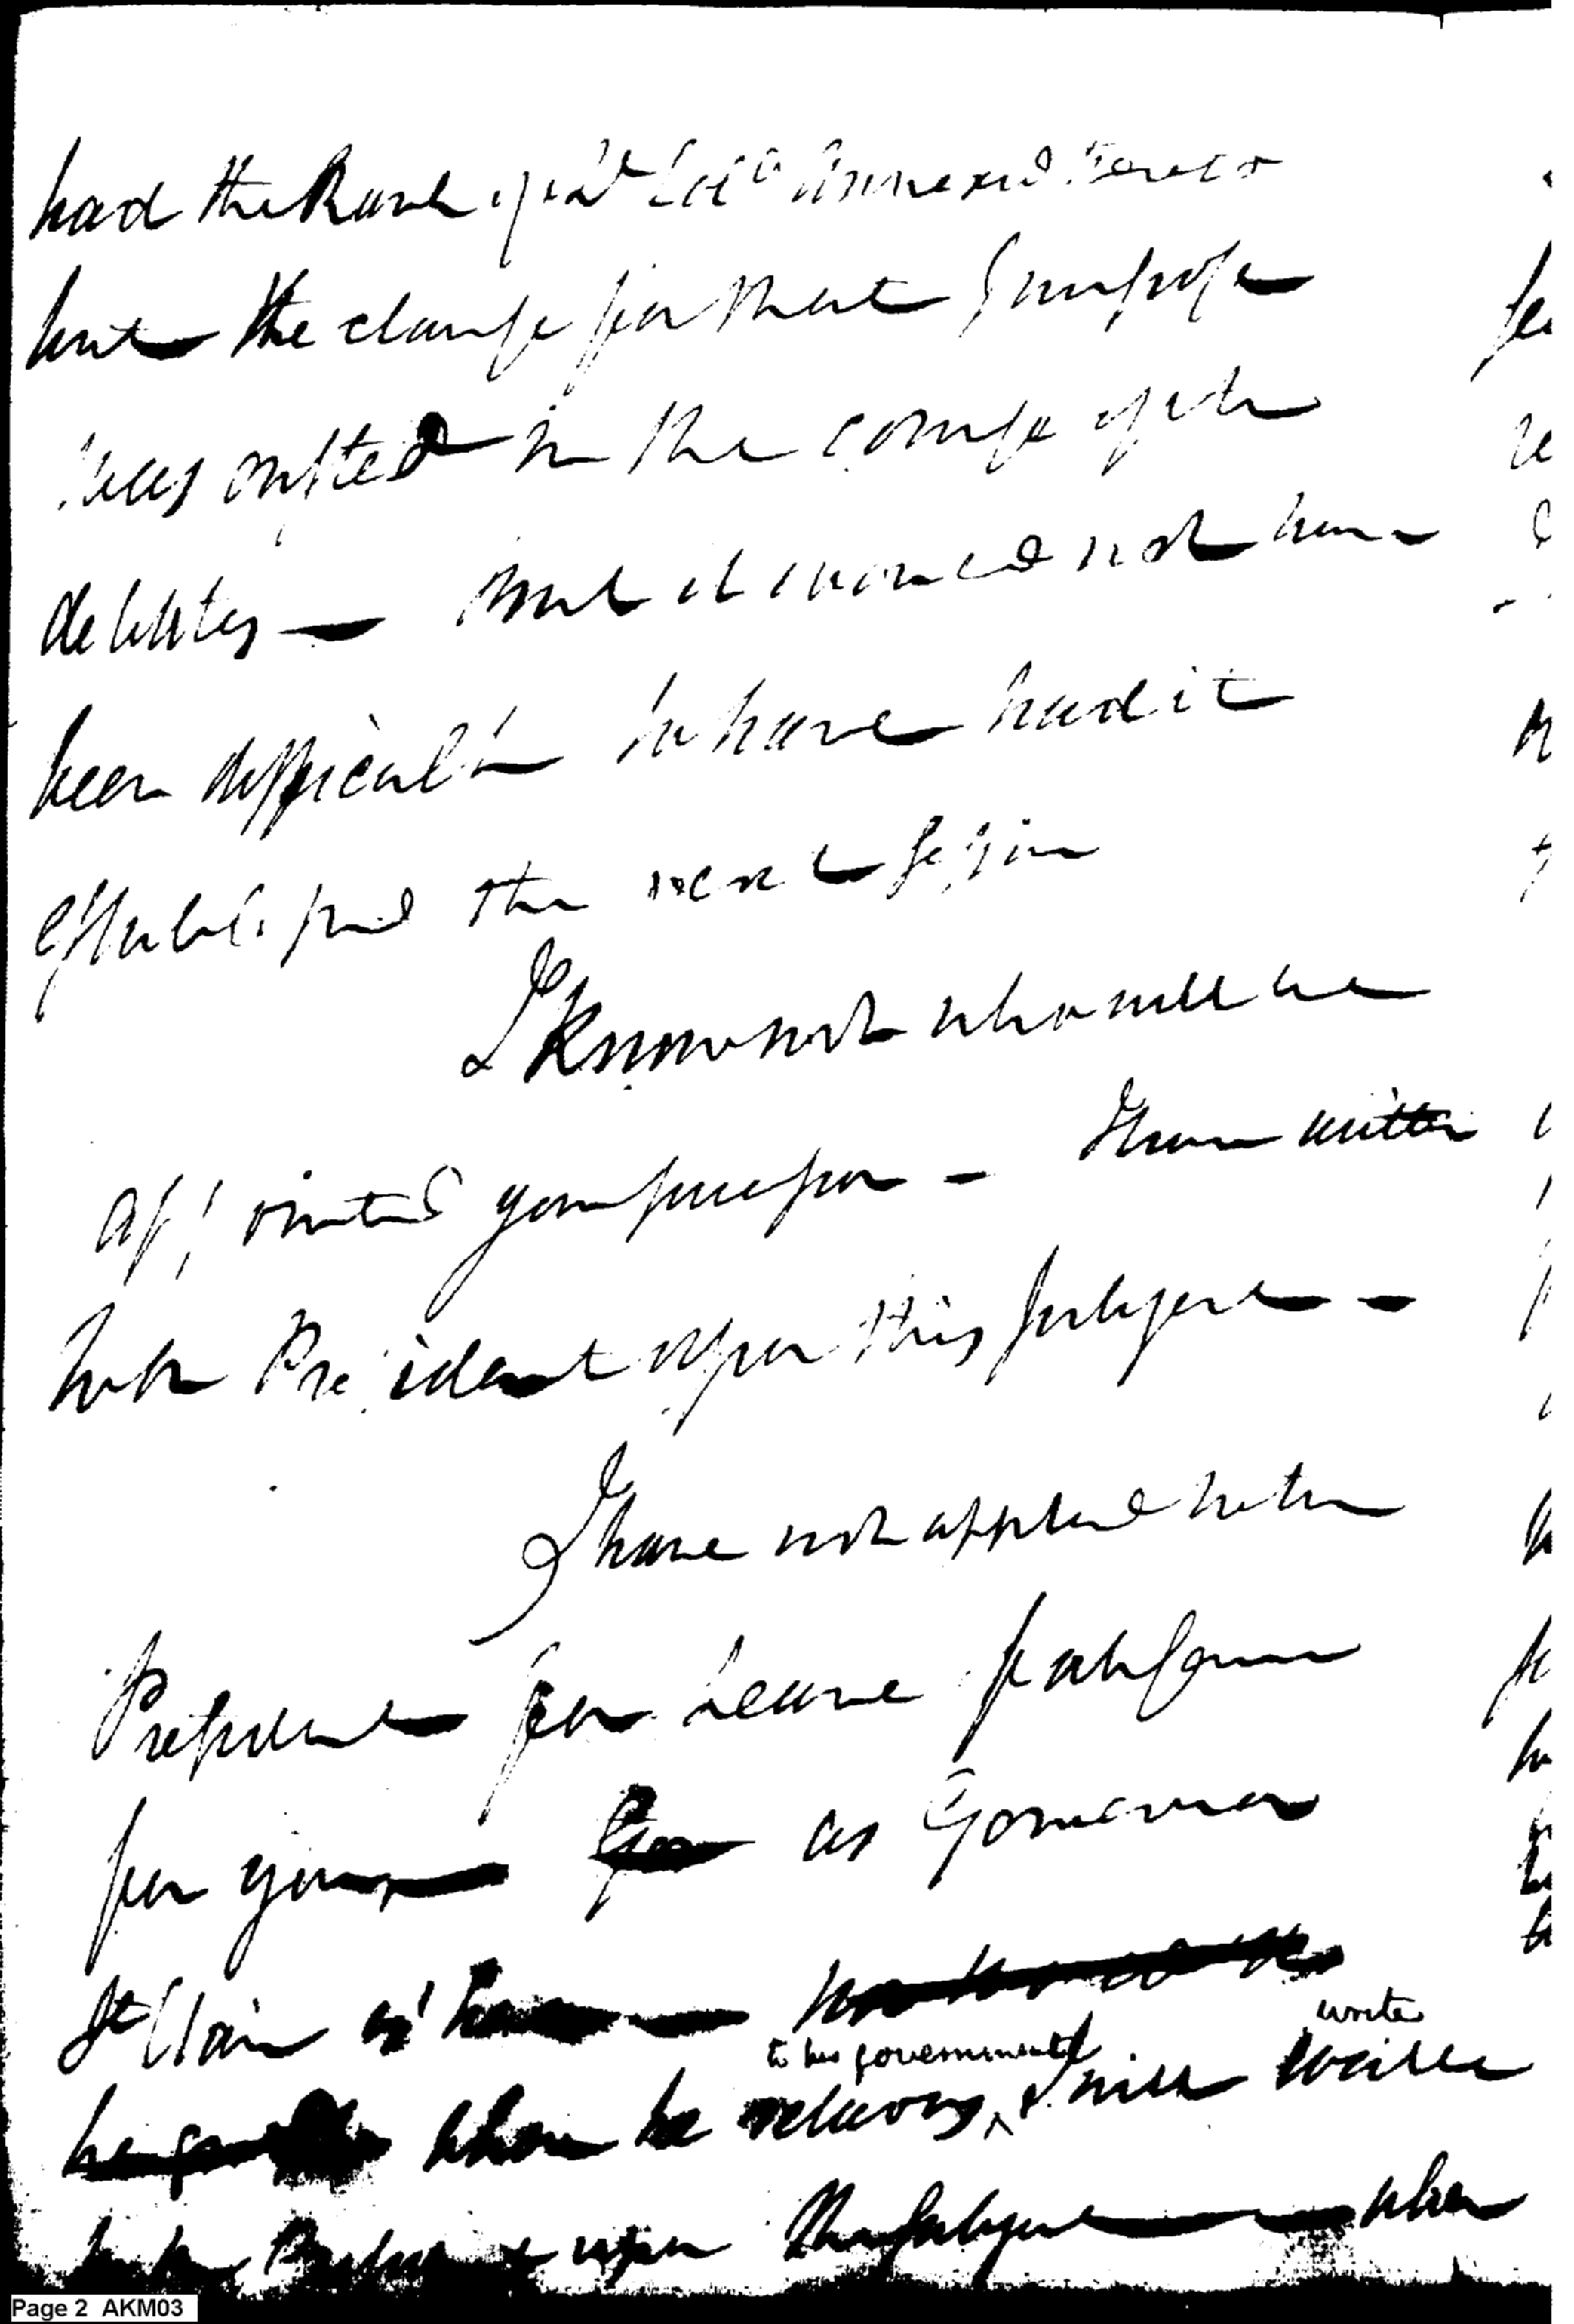 had the Rank of Lt Col annexed thereto
but the clause for that purpose
was omitted in the course of the
debates — But it would not have
been difficult to have had it
established the next session
I know not who will be
appointed your successor — I have written
to the President upon this subject —
I have not applied to the
President for leave of absence
for you as Governor
St Clair is here
when he returns
to his government I will write
to the President upon the subject — when
Page 2 AKM03